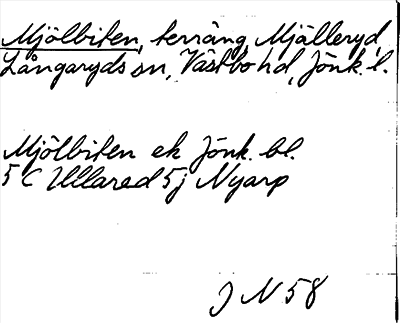 Mjölbiten, terräng, Mjälleryd,
Långaryds sn, Västbo hd, Jönk. l.
Mjölbiten ek Jönk. bl.
5 C Ullared 5j Nyarp
J N 58